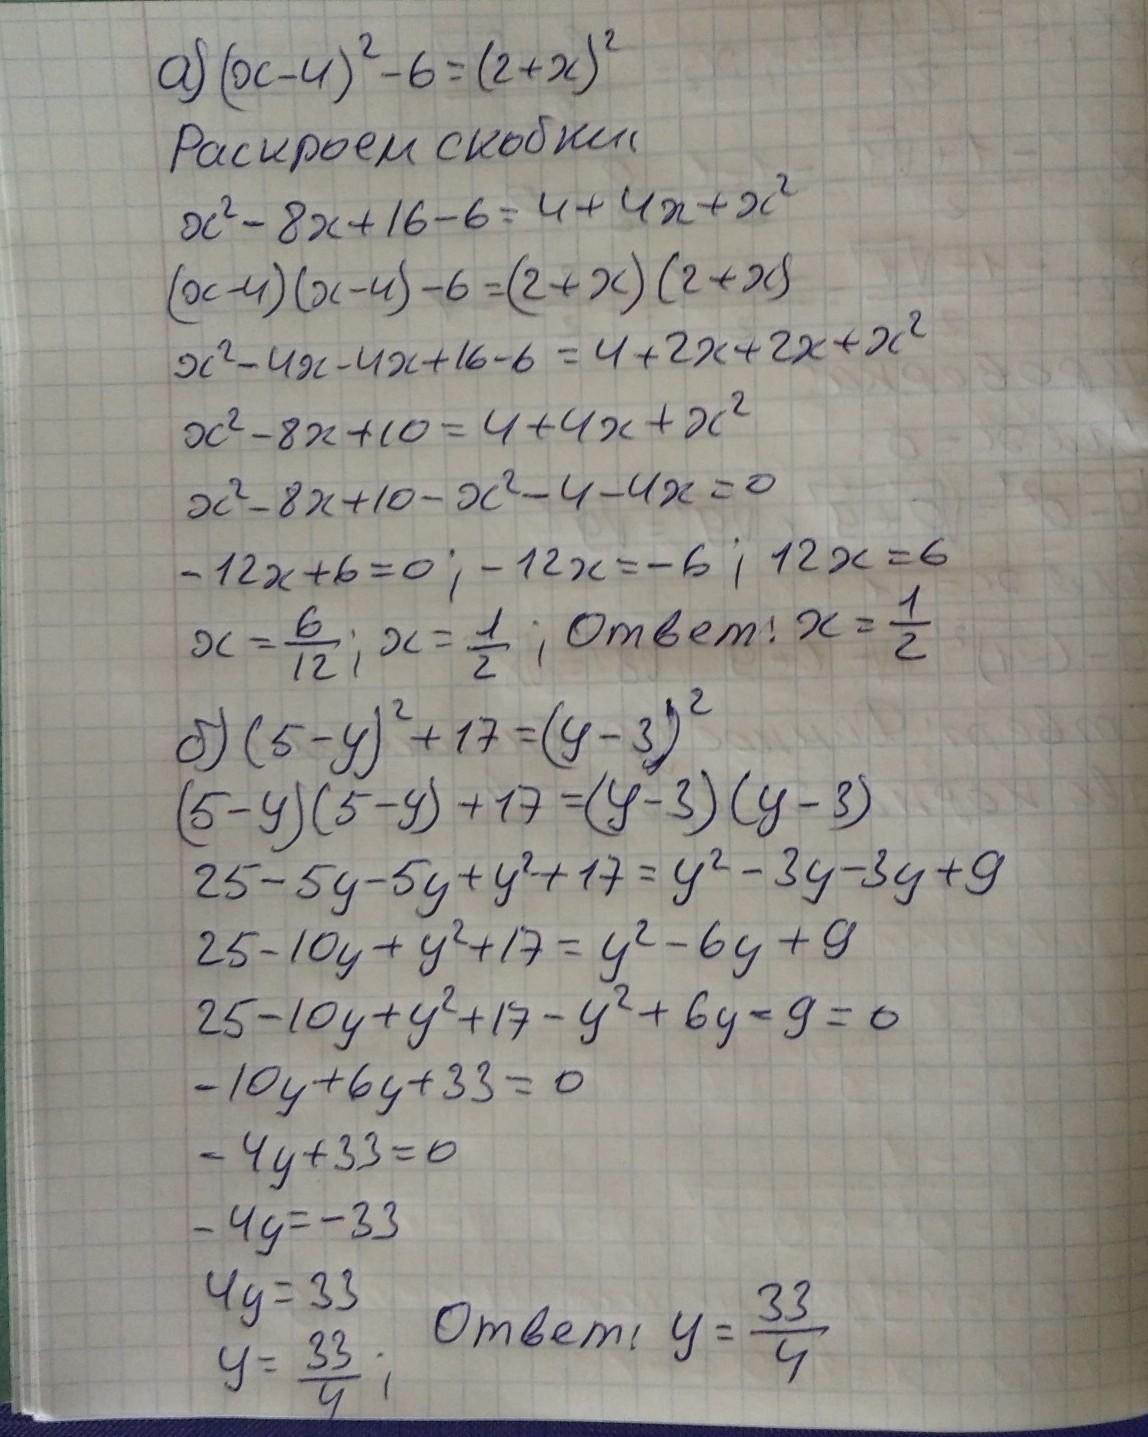 а) (x-4)²-6=(2+x)²
Раскроем скобки:
x²-8x+16-6=4+4x+x²
(x-4)(x-4)-6=(2+x)(2+x)
x²-4x-4x+16-6=4+2x+2x+x²
x²-8x+10=4+4x+x²
x²-8x+10-x²-4-4x=0
-12x+6=0; -12x=-6; 12x=6
x=6/12; x=1/2; Ответ: x=1/2
б) (5-y)²+17=(y-3)²
(5-y)(5-y)+17=(y-3)(y-3)
25-5y-5y+y²+17=y²-3y-3y+9
25-10y+y²+17=y²-6y+9
25-10y+y²+17-y²+6y-9=0
-10y+6y+33=0
-4y+33=0
-4y=-33
4y=33
y=33/4; Ответ: y=33/4